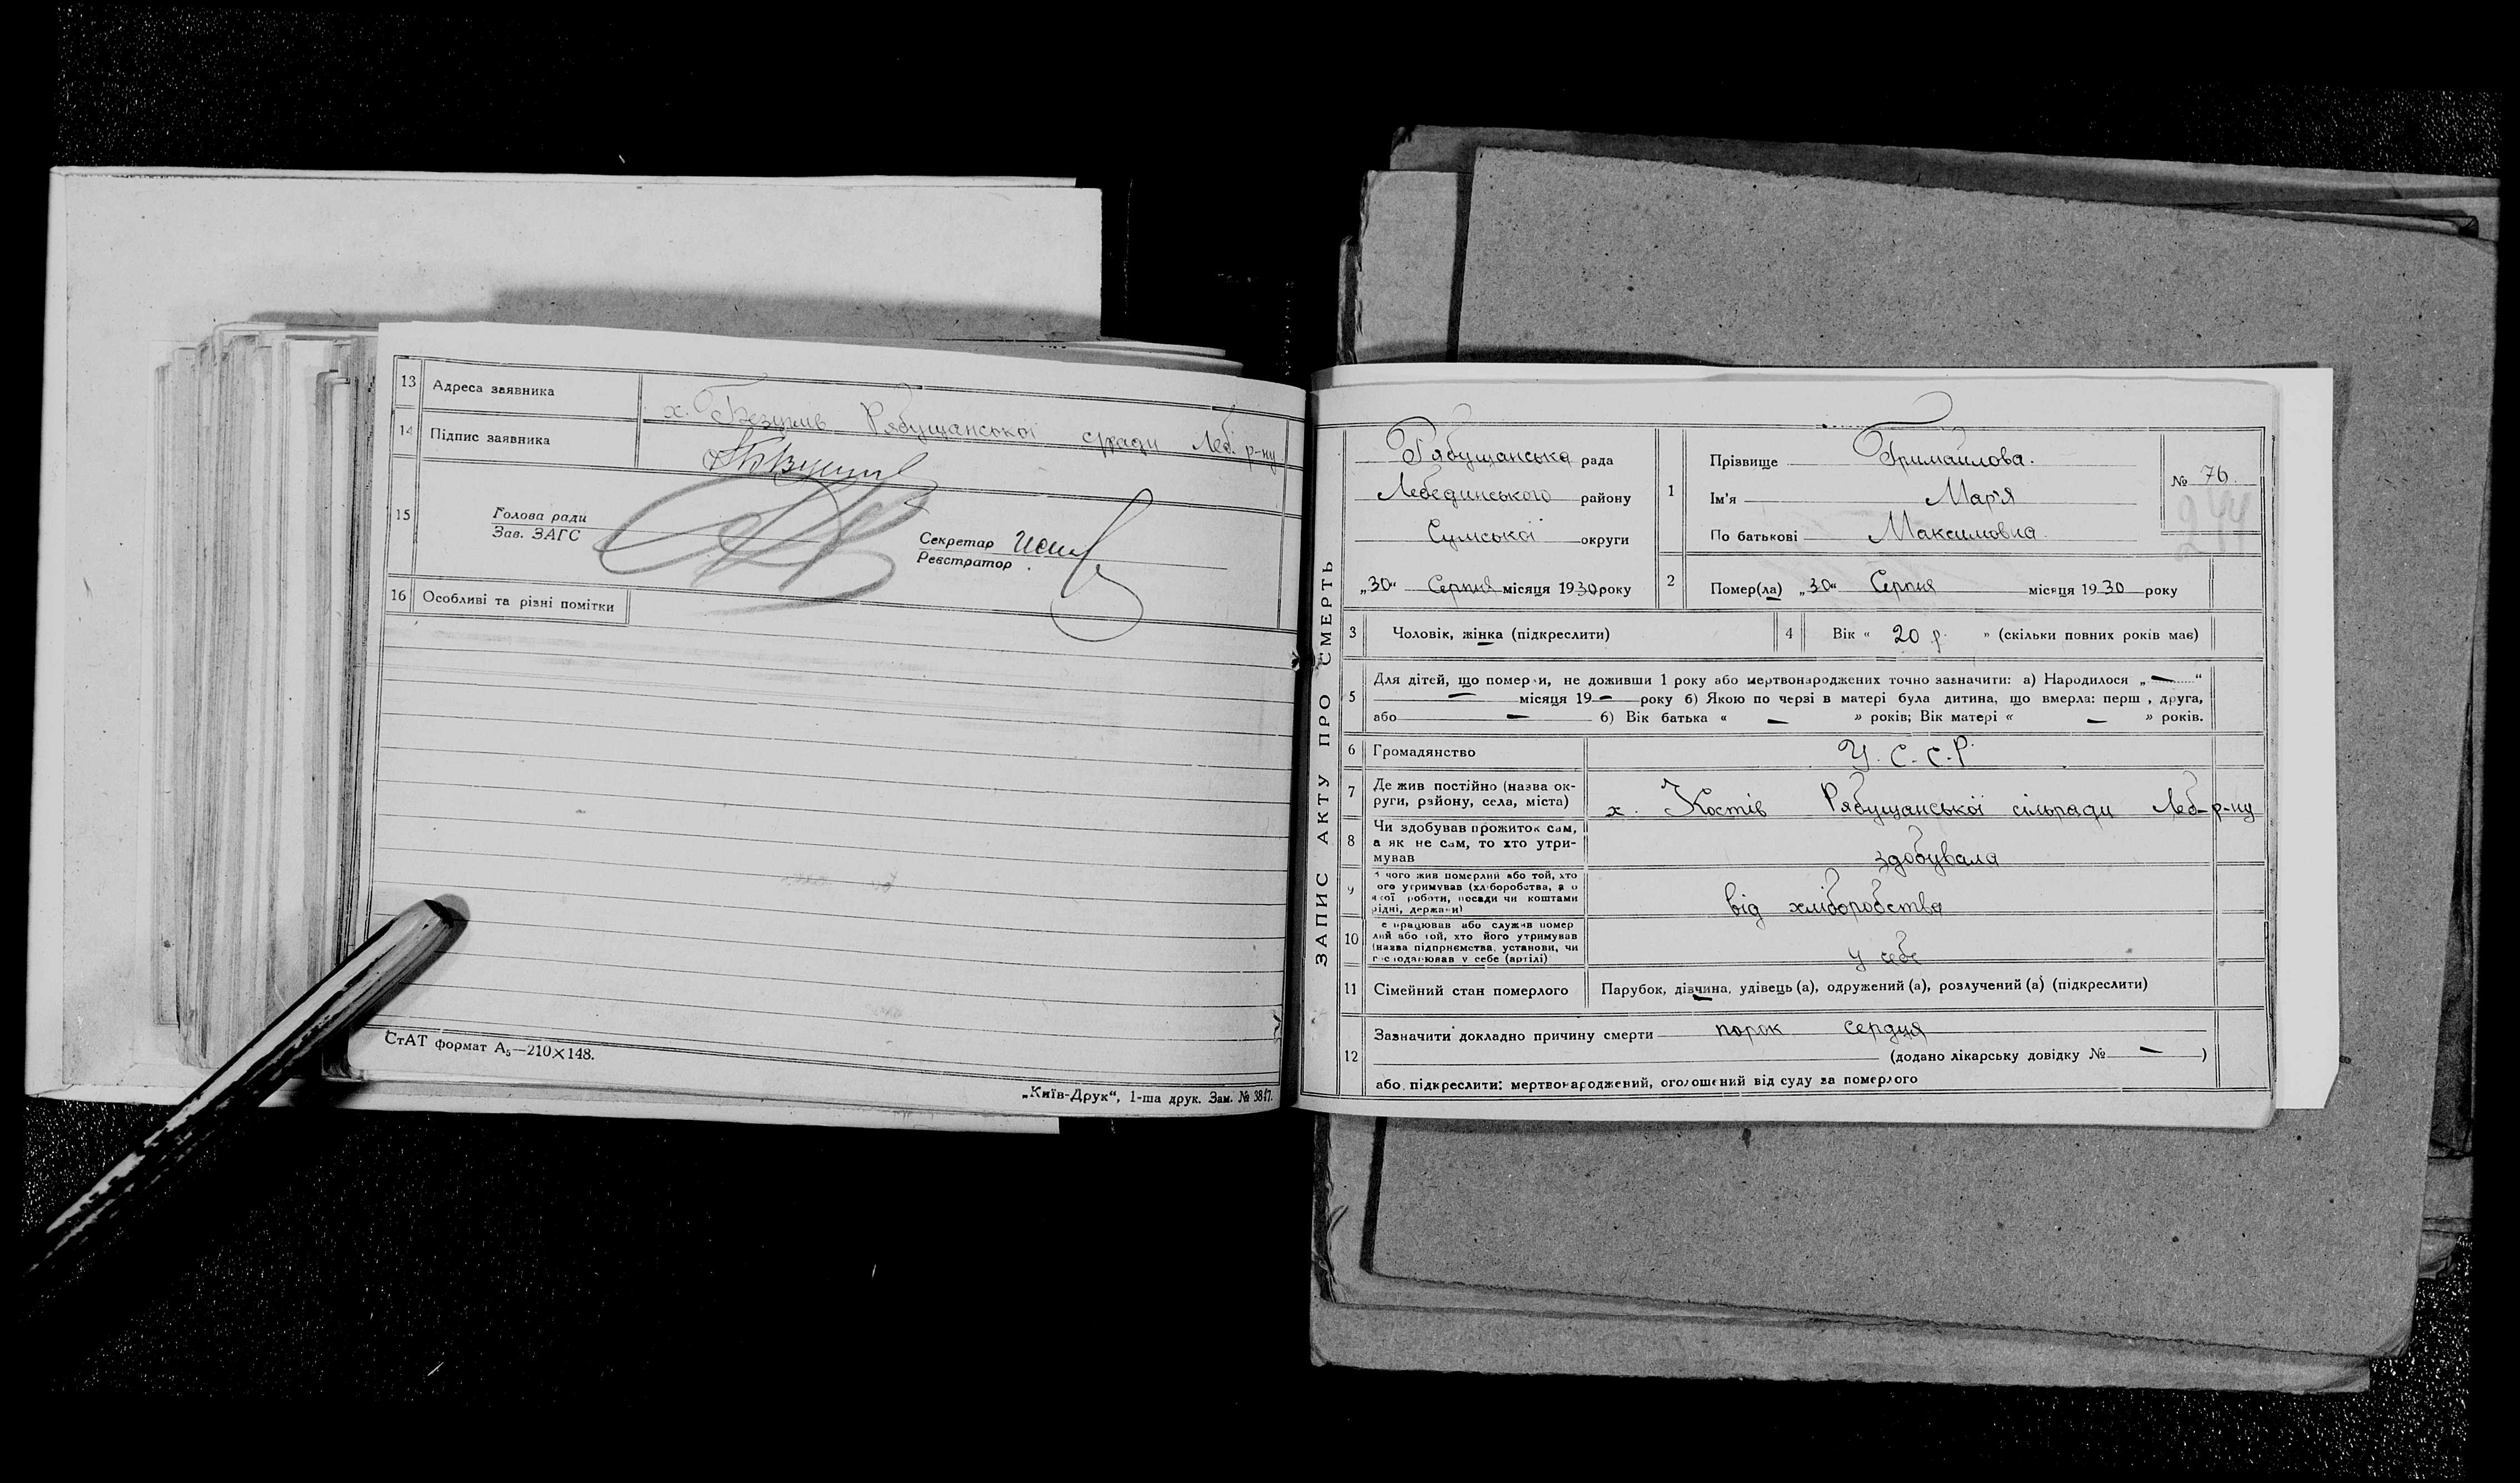 13 Адреса заявника х. Безугляв Рябущанської с/ради Леб. р-ну
14 Підпис заявника
15 Голова ради
Зав. ЗАГС
Секретар
Реєстратор
16 Особливі та різні помітки
СтАТ формат А₅—210×148.
„Київ-Друк“, 1-ша друк. Зам. № 3847.
ЗАПИС АКТУ ПРО СМЕРТЬ
Рябущанська рада
Лебединського району
Сумської округи
„30“ Серпня місяця 1930 року
1 Прізвище Гримайлова.
Ім'я Мар'я
По батькові Максимовна
№ 76.
244
2 Помер(ла) „30“ Серпня місяця 1930 року
3 Чоловік, жінка (підкреслити)
4 Вік « 20 р. » (скільки повних років має)
5 Для дітей, що померли, не доживши 1 року або мертвонароджених точно зазначити: а) Народилося „—“
— місяця 19— року б) Якою по черзі в матері була дитина, що вмерла: перш , друга,
або — б) Вік батька « — » років; Вік матері « — » років.
6 Громадянство У.С.С.Р.
7 Де жив постійно (назва ок-
руги, району, села, міста) х. Костів Рябущанської сільради Леб-р-ну
8 Чи здобував прожиток сам,
а як не сам, то хто утри-
мував здобувала
9 З чого жив померлий або той, хто
ого утримував (хліборобства, з
якої роботи, посади чи коштами
рідні, держави) від хліборобства
10 е працював або служив помер
лий або той, хто його утримував
(назва підприємства, установи, чи
господарював у себе (артілі) у себе
11 Сімейний стан померлого Парубок, дівчина, удівець (а), одружений (а), розлучений (а) (підкреслити)
12 Зазначити докладно причину смерти порок сердця
(додано лікарську довідку № — )
або підкреслити: мертвонароджений, оголошений від суду за померлого